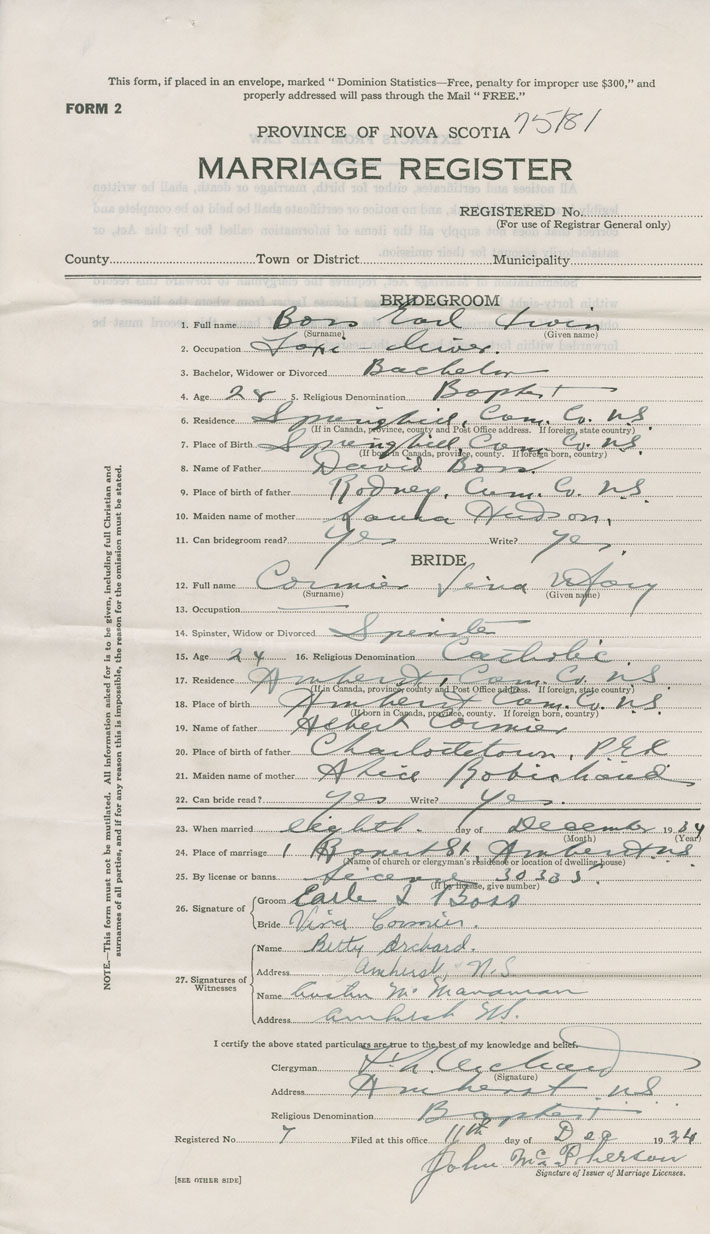 This form, if placed in an envelope, marked “ Dominion Statistics—Free, penalty for improper use $300,” and
properly addressed will pass through the Mail “ FREE.”
FORM 2
PROVINCE OF NOVA SCOTIA 75181
MARRIAGE REGISTER
REGISTERED No.
(For use of Registrar General only)
County Town or District Municipality
BRIDEGROOM
1. Full name Boss Earl Irvin
(Surname) (Given name)
2. Occupation Taxi-driver.
3. Bachelor, Widower or Divorced Bachelor
4. Age 28 5. Religious Denomination Baptist
6. Residence Springhill, Cum. Co. N.S.
(If in Canada, province, county and Post Office address. If foreign, state country)
7. Place of Birth Springhill, Cum. Co. N.S.
(If born in Canada, province, county. If foreign born, country)
8. Name of Father David Boss.
9. Place of birth of father Rodney, Cum. Co. N.S.
10. Maiden name of mother Laura Hudson,
11. Can bridegroom read? yes Write? yes,
BRIDE
12. Full name Cormier Vina Mary
(Surname) (Given name)
13. Occupation —
14. Spinster, Widow or Divorced Spinster
15. Age 24 16. Religious Denomination Catholic.
17. Residence Amherst, Cum. Co. N.S.
(If in Canada, province, county and Post Office address. If foreign, state country)
18. Place of birth Amherst Cum. Co. N.S.
(If born in Canada, province, county. If foreign born, country)
19. Name of father Albert Cormier
20. Place of birth of father Charlottetown, P.E.I.
21. Maiden name of mother Alice Robichaud
22. Can bride read? yes Write? yes.
23. When married eighth. day of December 1934
(Month) (Year)
24. Place of marriage 1 St, Amherst N.S.
(Name of church or clergyman's residence or location of dwelling house)
25. By license or banns license 30335.
(If by license, give number)
26. Signature of Groom Earle I Boss
Bride Vina Cormier.
27. Signatures of Witnesses Name Betty Orchard.
Address Amherst, N.S
Name Austin McManaman
Address Amherst N.S.
I certify the above stated particulars are true to the best of my knowledge and belief.
Clergyman Orchard
(Signature)
Address Amherst N.S.
Religious Denomination Baptist
Registered No. 7 Filed at this office 11th day of Dec 1934
John McPherson
Signature of Issuer of Marriage Licenses.
[SEE OTHER SIDE]
NOTE.—This form must not be mutilated. All information asked for is to be given, including full Christian and
surnames of all parties, and if for any reason this is impossible, the reason for the omission must be stated.